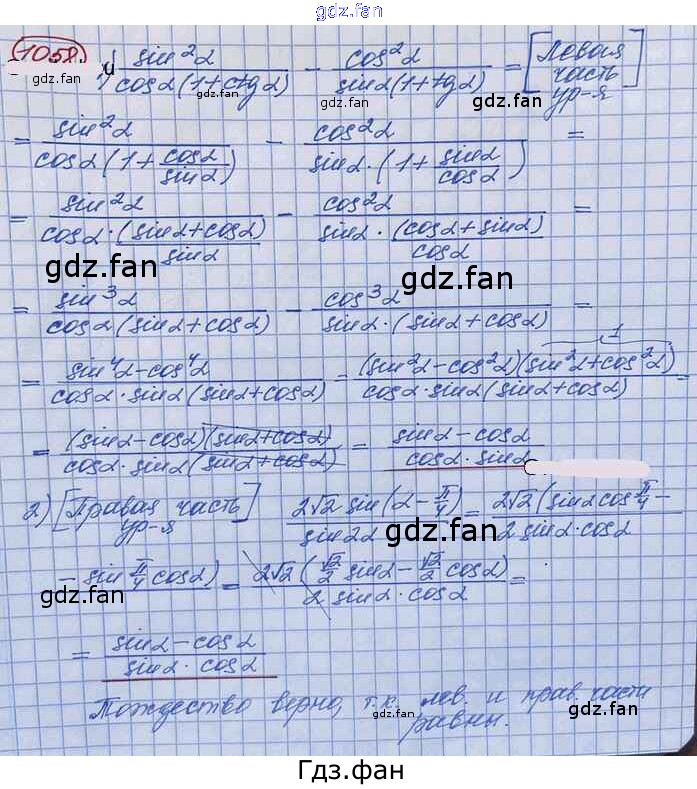 gdz.fan
1058.
1) sin²α / cosα(1+ctgα) − cos²α / sinα(1+tgα) = [Левая часть ур-я]
gdz.fan gdz.fan gdz.fan gdz.fan
= sin²α / cosα(1+cosα/sinα) − cos²α / sinα·(1+sinα/cosα) =
= sin²α / (cosα·(sinα+cosα)/sinα) − cos²α / (sinα·(cosα+sinα)/cosα) =
gdz.fan gdz.fan
= sin³α / cosα(sinα+cosα) − cos³α / sinα·(sinα+cosα) =
= sin⁴α−cos⁴α / cosα·sinα(sinα+cosα) = (sin²α−cos²α)(sin²α+cos²α) / cosα·sinα(sinα+cosα) =
1
= (sinα−cosα)(sinα+cosα) / cosα·sinα(sinα+cosα) = sinα−cosα / cosα·sinα
2) [Правая часть ур-я] 2√2 sin(α−π/4) / sin2α = 2√2(sinα cos π/4 − / 2 sinα·cosα
gdz.fan gdz.fan
− sin π/4 cosα) = 2√2(√2/2 sinα − √2/2 cosα) / 2 sinα·cosα =
gdz.fan gdz.fan
= sinα−cosα / sinα·cosα
Тождество верно, т.к. лев. и прав. части
равны.
gdz.fan gdz.fan gdz.fan
Гдз.фан